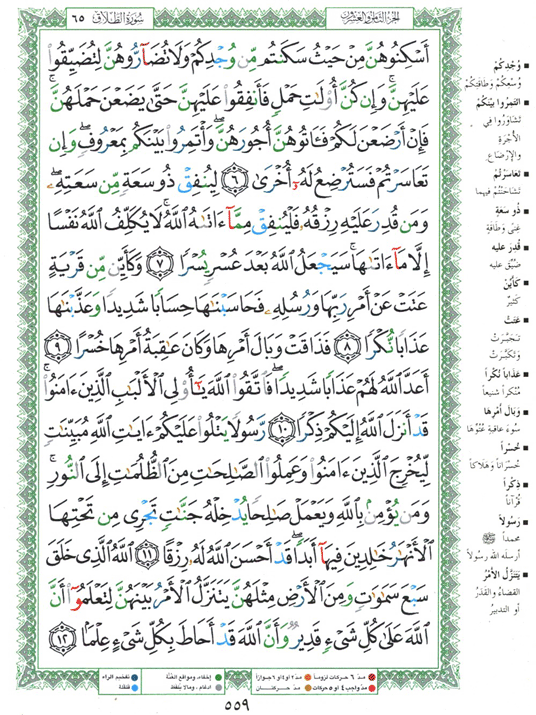 الجزء الثامن والعشرون
سورة الطلاق
٦٥
أَسْكِنُوهُنَّ مِنْ حَيْثُ سَكَنتُم مِّن وُجْدِكُمْ وَلَا تُضَآرُّوهُنَّ لِتُضَيِّقُوا۟
عَلَيْهِنَّ ۚ وَإِن كُنَّ أُو۟لَٰتِ حَمْلٍ فَأَنفِقُوا۟ عَلَيْهِنَّ حَتَّىٰ يَضَعْنَ حَمْلَهُنَّ ۚ
فَإِنْ أَرْضَعْنَ لَكُمْ فَـَٔاتُوهُنَّ أُجُورَهُنَّ ۖ وَأْتَمِرُوا۟ بَيْنَكُم بِمَعْرُوفٍ ۖ وَإِن
تَعَاسَرْتُمْ فَسَتُرْضِعُ لَهُۥٓ أُخْرَىٰ ٦ لِيُنفِقْ ذُو سَعَةٍ مِّن سَعَتِهِۦ ۖ
وَمَن قُدِرَ عَلَيْهِ رِزْقُهُۥ فَلْيُنفِقْ مِمَّآ ءَاتَىٰهُ ٱللَّهُ ۚ لَا يُكَلِّفُ ٱللَّهُ نَفْسًا
إِلَّا مَآ ءَاتَىٰهَا ۚ سَيَجْعَلُ ٱللَّهُ بَعْدَ عُسْرٍ يُسْرًا ٧ وَكَأَيِّن مِّن قَرْيَةٍ
عَتَتْ عَنْ أَمْرِ رَبِّهَا وَرُسُلِهِۦ فَحَاسَبْنَٰهَا حِسَابًا شَدِيدًا وَعَذَّبْنَٰهَا
عَذَابًا نُّكْرًا ٨ فَذَاقَتْ وَبَالَ أَمْرِهَا وَكَانَ عَٰقِبَةُ أَمْرِهَا خُسْرًا ٩
أَعَدَّ ٱللَّهُ لَهُمْ عَذَابًا شَدِيدًا ۖ فَٱتَّقُوا۟ ٱللَّهَ يَٰٓأُو۟لِى ٱلْأَلْبَٰبِ ٱلَّذِينَ ءَامَنُوا۟ ۚ
قَدْ أَنزَلَ ٱللَّهُ إِلَيْكُمْ ذِكْرًا ١٠ رَّسُولًا يَتْلُوا۟ عَلَيْكُمْ ءَايَٰتِ ٱللَّهِ مُبَيِّنَٰتٍ
لِّيُخْرِجَ ٱلَّذِينَ ءَامَنُوا۟ وَعَمِلُوا۟ ٱلصَّٰلِحَٰتِ مِنَ ٱلظُّلُمَٰتِ إِلَى ٱلنُّورِ ۚ
وَمَن يُؤْمِنۢ بِٱللَّهِ وَيَعْمَلْ صَٰلِحًا يُدْخِلْهُ جَنَّٰتٍ تَجْرِى مِن تَحْتِهَا
ٱلْأَنْهَٰرُ خَٰلِدِينَ فِيهَآ أَبَدًا ۖ قَدْ أَحْسَنَ ٱللَّهُ لَهُۥ رِزْقًا ١١ ٱللَّهُ ٱلَّذِى خَلَقَ
سَبْعَ سَمَٰوَٰتٍ وَمِنَ ٱلْأَرْضِ مِثْلَهُنَّ يَتَنَزَّلُ ٱلْأَمْرُ بَيْنَهُنَّ لِتَعْلَمُوٓا۟ أَنَّ
ٱللَّهَ عَلَىٰ كُلِّ شَىْءٍ قَدِيرٌ وَأَنَّ ٱللَّهَ قَدْ أَحَاطَ بِكُلِّ شَىْءٍ عِلْمًۢا ١٢
■ وُجْدِكُمْ
وُسْعِكُمْ وَطَاقَتِكُمْ
■ ائتَمِروا بَيْنَكُمْ
تَشَاوَرُوا فِي
الأُجْرَةِ
والإِرْضَاعِ
■ تَعَاسَرْتُمْ
تَشَاحَنْتُمْ فيهما
■ ذُو سَعَةٍ
غِنًى وَطَاقَةٍ
■ قُدِرَ عليه
ضُيِّقَ عليه
■ كَأَيِّنْ
كَثِيرٌ
■ عَتَتْ
تَجَبَّرَتْ
وتَكَبَّرَتْ
■ عَذَاباً نُكْراً
مُنْكَراً شنيعاً
■ وَبَالَ أَمْرِها
سوءَ عاقبة عُتُوِّها
■ خُسْراً
خُسْرَاناً وَهَلاكاً
■ ذِكْراً
قُرآناً
■ رَسُولاً
محمداً ﷺ
أرسله الله رسولاً
■ يَتَنَزَّلُ الأَمْرُ
القضاءُ والقَدَرُ
أو التدبيرُ
مدّ ٦ حركات لزوماً
مدّ ٢ أو ٤ أو ٦ جوازاً
إخفاء، ومواقع الغنّة
تفخيم الراء
مدّ واجب ٤ أو ٥ حركات
مدّ حركتان
إدغام، وما لا يلفظ
قلقلة
٥٥٩